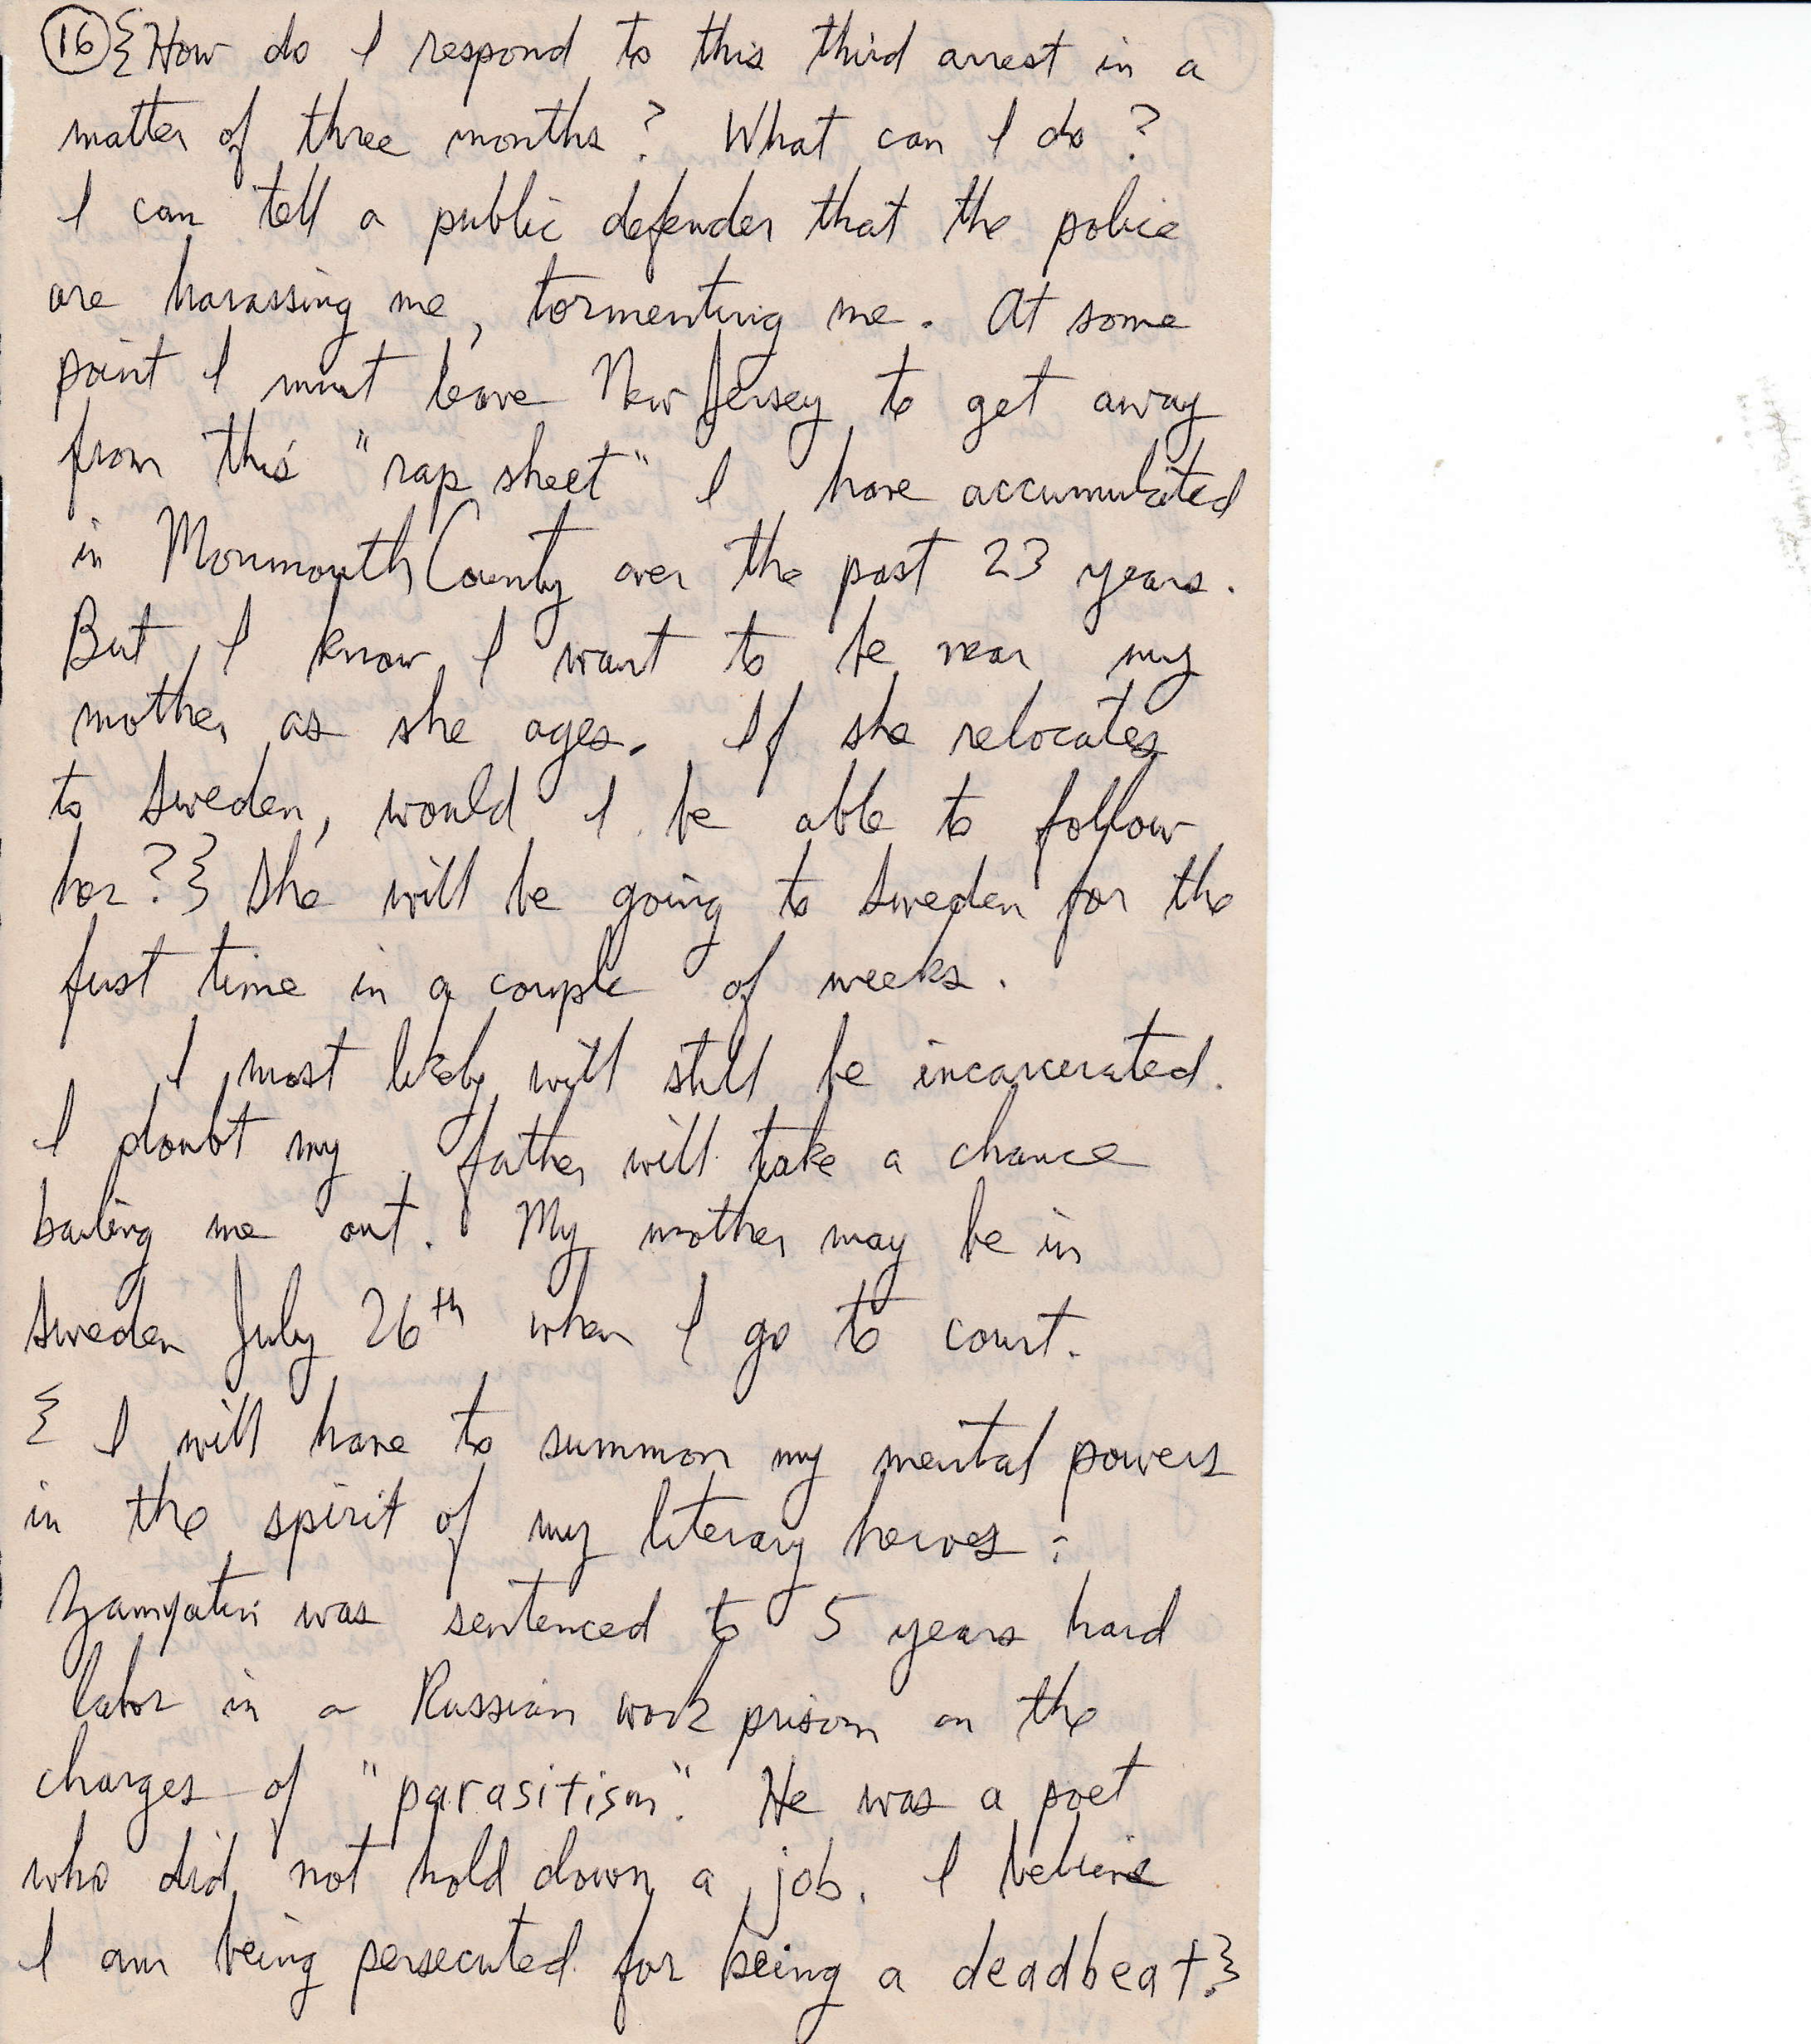 16 {How do I respond to this third arrest in a
matter of three months? What can I do?
I can tell a public defender that the police
are harassing me, tormenting me. At some
point I must leave New Jersey to get away
from this "rap sheet" I have accumulated
in Monmouth County over the past 23 years.
But I know I want to be near my
mother as she ages. If she relocates
to Sweden, would I be able to follow
her?} She will be going to Sweden for the
first time in a couple of weeks.
I most likely will still be incarcerated.
I doubt my father will take a chance
bailing me out. My mother may be in
Sweden July 26th when I go to court.
{ I will have to summon my mental powers
in the spirit of my literary heroes:
Zamyatin was sentenced to 5 years hard
labor in a Russian work prison on the
charges of "parasitism". He was a poet
who did not hold down a job. I believe
I am being persecuted for being a deadbeat.}